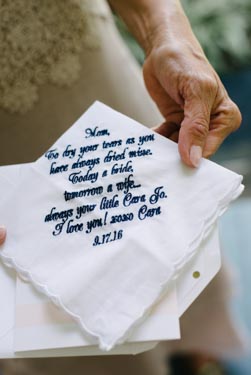 Mom,
To dry your tears as you
have always dried mine.
Today a bride,
tomorrow a wife...
always your little Cara Jo.
I love you! xoxo Cara
9.17.16